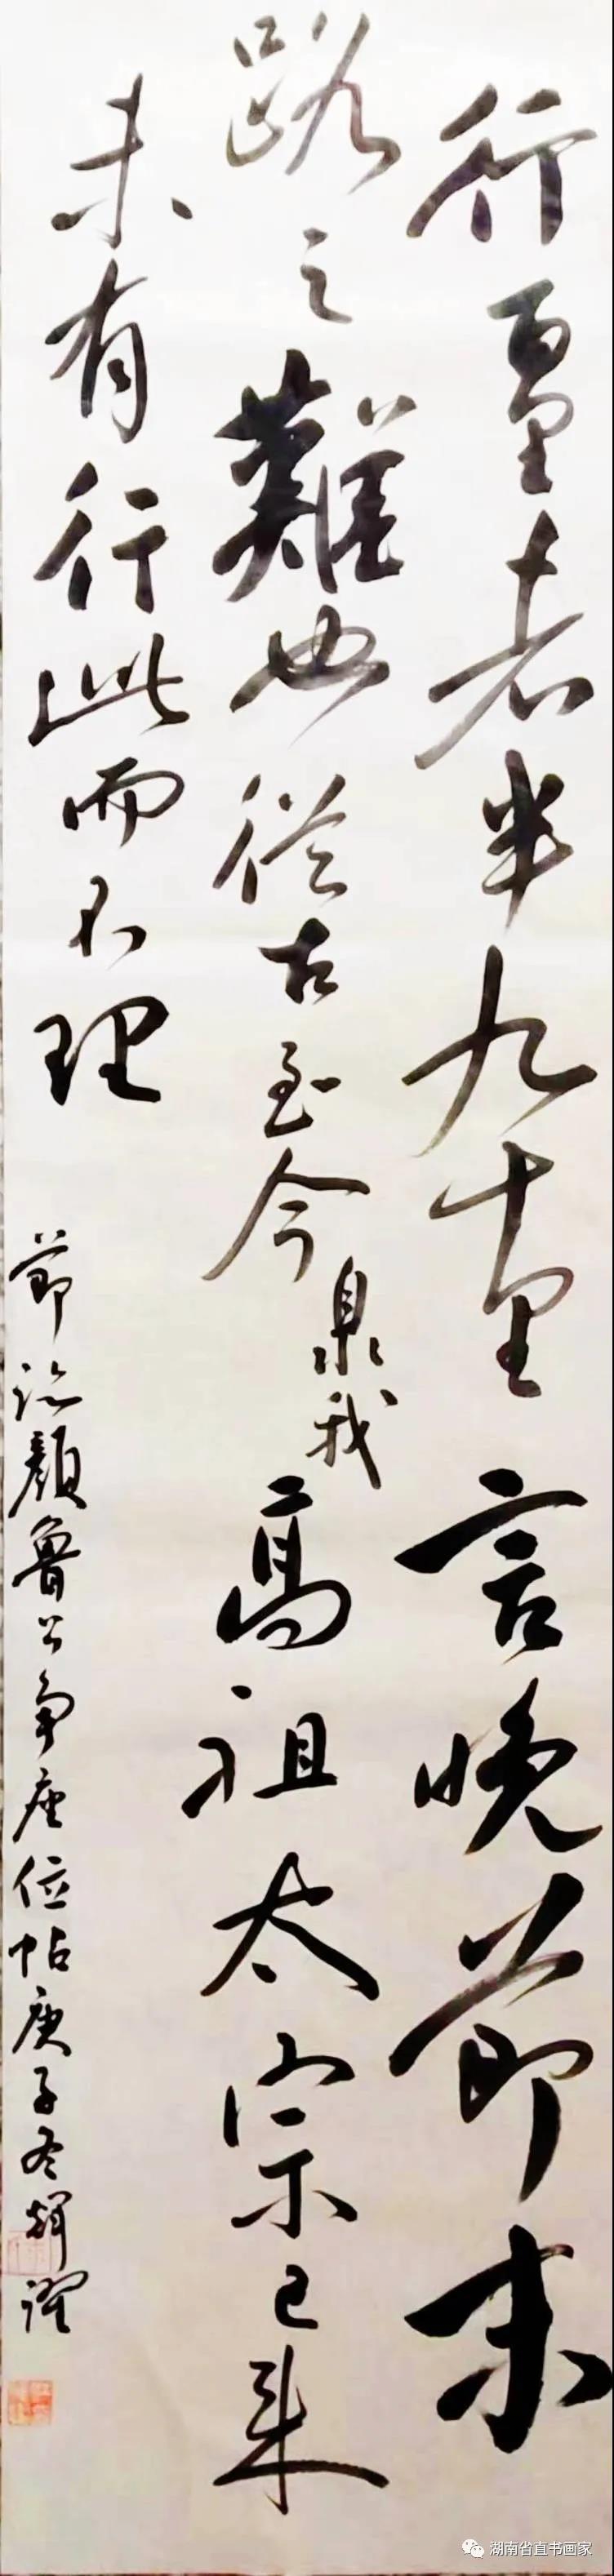 行百里者半九十里言晚節末
路之難也從古至今臮我高祖太宗已來
未有行此而不理
節臨顏魯公争座位帖庚子冬輝
湖南省直书画家